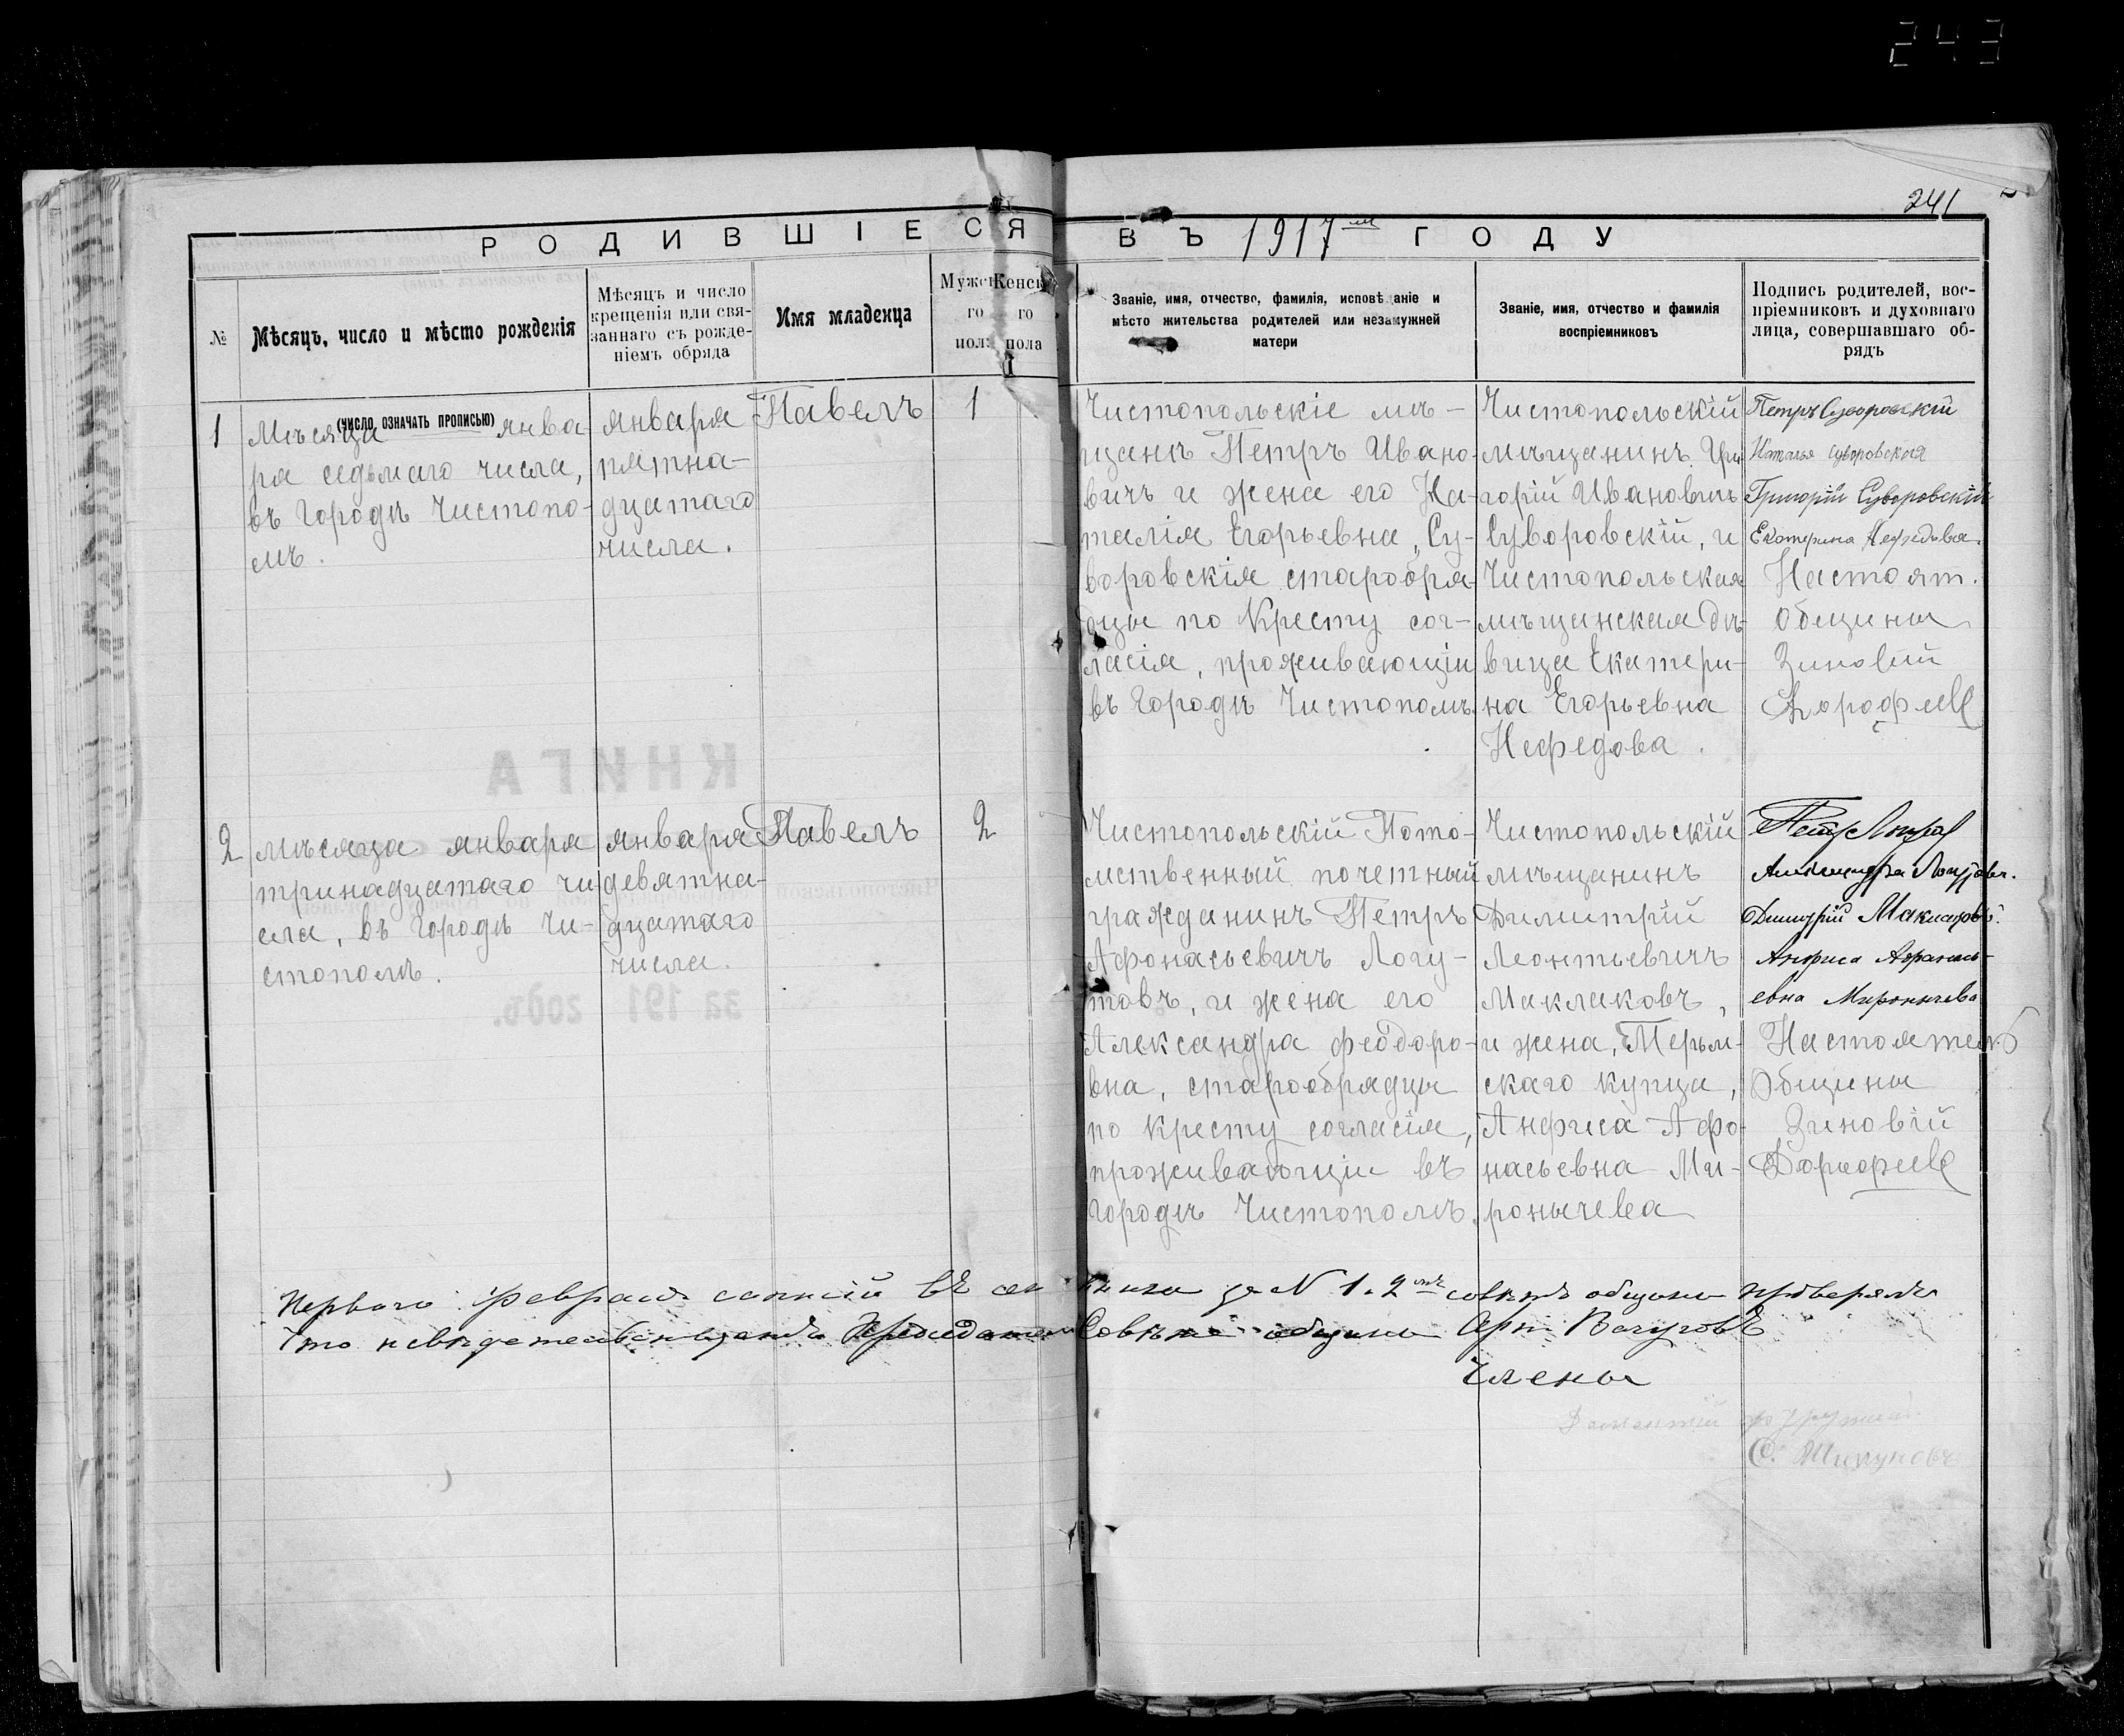 243
241
РОДИВШІЕСЯ ВЪ 1917 м ГОДУ
№
Мѣсяцъ, число и мѣсто рожденія
(число означать прописью)
Мѣсяцъ и число
крещенія или свя-
заннаго съ рожде-
ніемъ обряда
Имя младенца
Мужс
го
пол
Женск
го
пола
Званіе, имя, отчество, фамилія, исповѣданіе и
мѣсто жительства родителей или незамужней
матери
Званіе, имя, отчество и фамилія
воспріемниковъ
Подпись родителей, вос-
пріемниковъ и духовнаго
лица, совершавшаго об-
рядъ
1
Мѣсяца янва
ря седьмаго числа,
въ Городѣ Чистопо-
лѣ.
января
пятна-
дцатаго
числа.
Павелъ
1
Чистопольскіе мѣ-
щанѣ Петръ Ивано-
вичъ и жена его На-
талія Егорьевна, Су-
воровскія старообря-
дцы по Кресту сог-
ласія, проживающіи
въ Городѣ Чистополѣ.
Чистопольскій
мѣщанинъ Гри
горій Ивановичъ
Суворовскій, и
Чистопольская
мѣщанская дѣ-
вица Екатери-
на Егорьевна
Нефедова.
Петръ Суворовскій
Наталья Суворовская
Григорій Суворовскій
Екатерина Нефедова.
Настоят.
Общины
Зиновій
Дорофеев
2
мѣсяца января
тринадцатаго чи
сла, въ Городѣ Чи-
стополѣ.
января
девятна-
дцатаго
числа.
Павелъ
2
Чистопольскій Пото-
мственный почетный
гражданинъ Петръ
Афонасьевичъ Логу-
товъ, и жена его
Александра Феодоро-
вна, старообрядцы
по кресту согласія,
проживающіи въ
Городѣ Чистополѣ.
Чистопольскій
мѣщанинъ
Димитрій
Леонтьевичъ
Маклаковъ,
и жена, Перьм-
скаго купца,
Анфиса Афо-
насьевна Ми-
ронычева
Александра Логутова.
Димитрій Маклаковъ.
Анфиса Афанась-
евна Миронычева
Настоятель
Общины
Зиновій
Дорофеев
Перваго февраля въ сей книги за N 1. 2 совѣтъ общины провѣрялъ
Что Председатель Совѣта общины Вагуровъ
Члены
КНИГА
за 191 годъ.